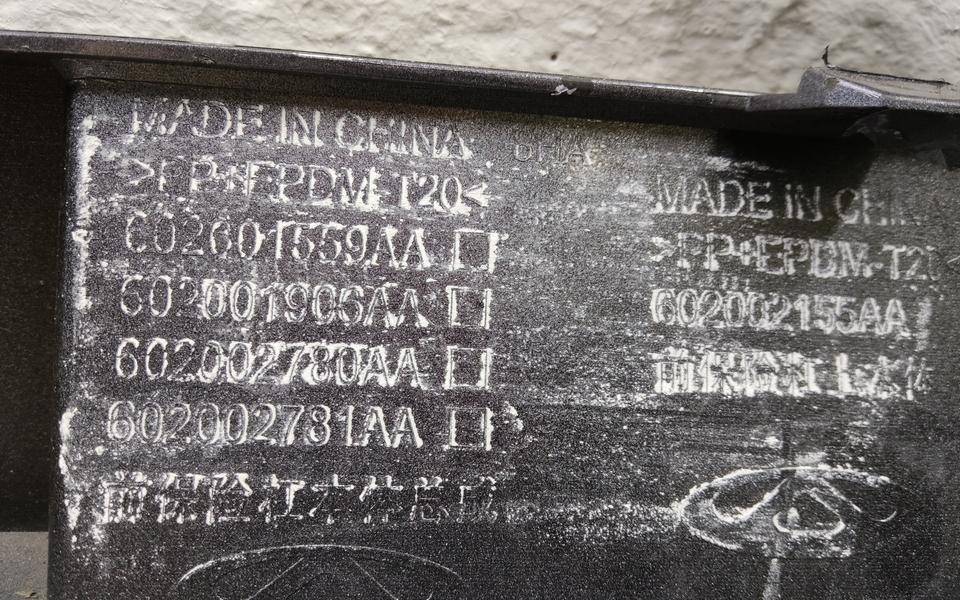 MADE IN CHINA
>PP+EPDM-T20<
602001559AA
602001906AA
602002780AA
602002781AA
前保险杠本体总成
MADE IN CHI
>PP+EPDM-T20
602002155AA
前保险杠上本体